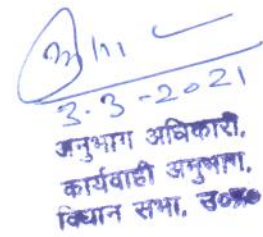 3.3-2021
अनुभाग अधिकारी,
कार्यवाही अनुभाग,
विधान सभा, उ०प्र०